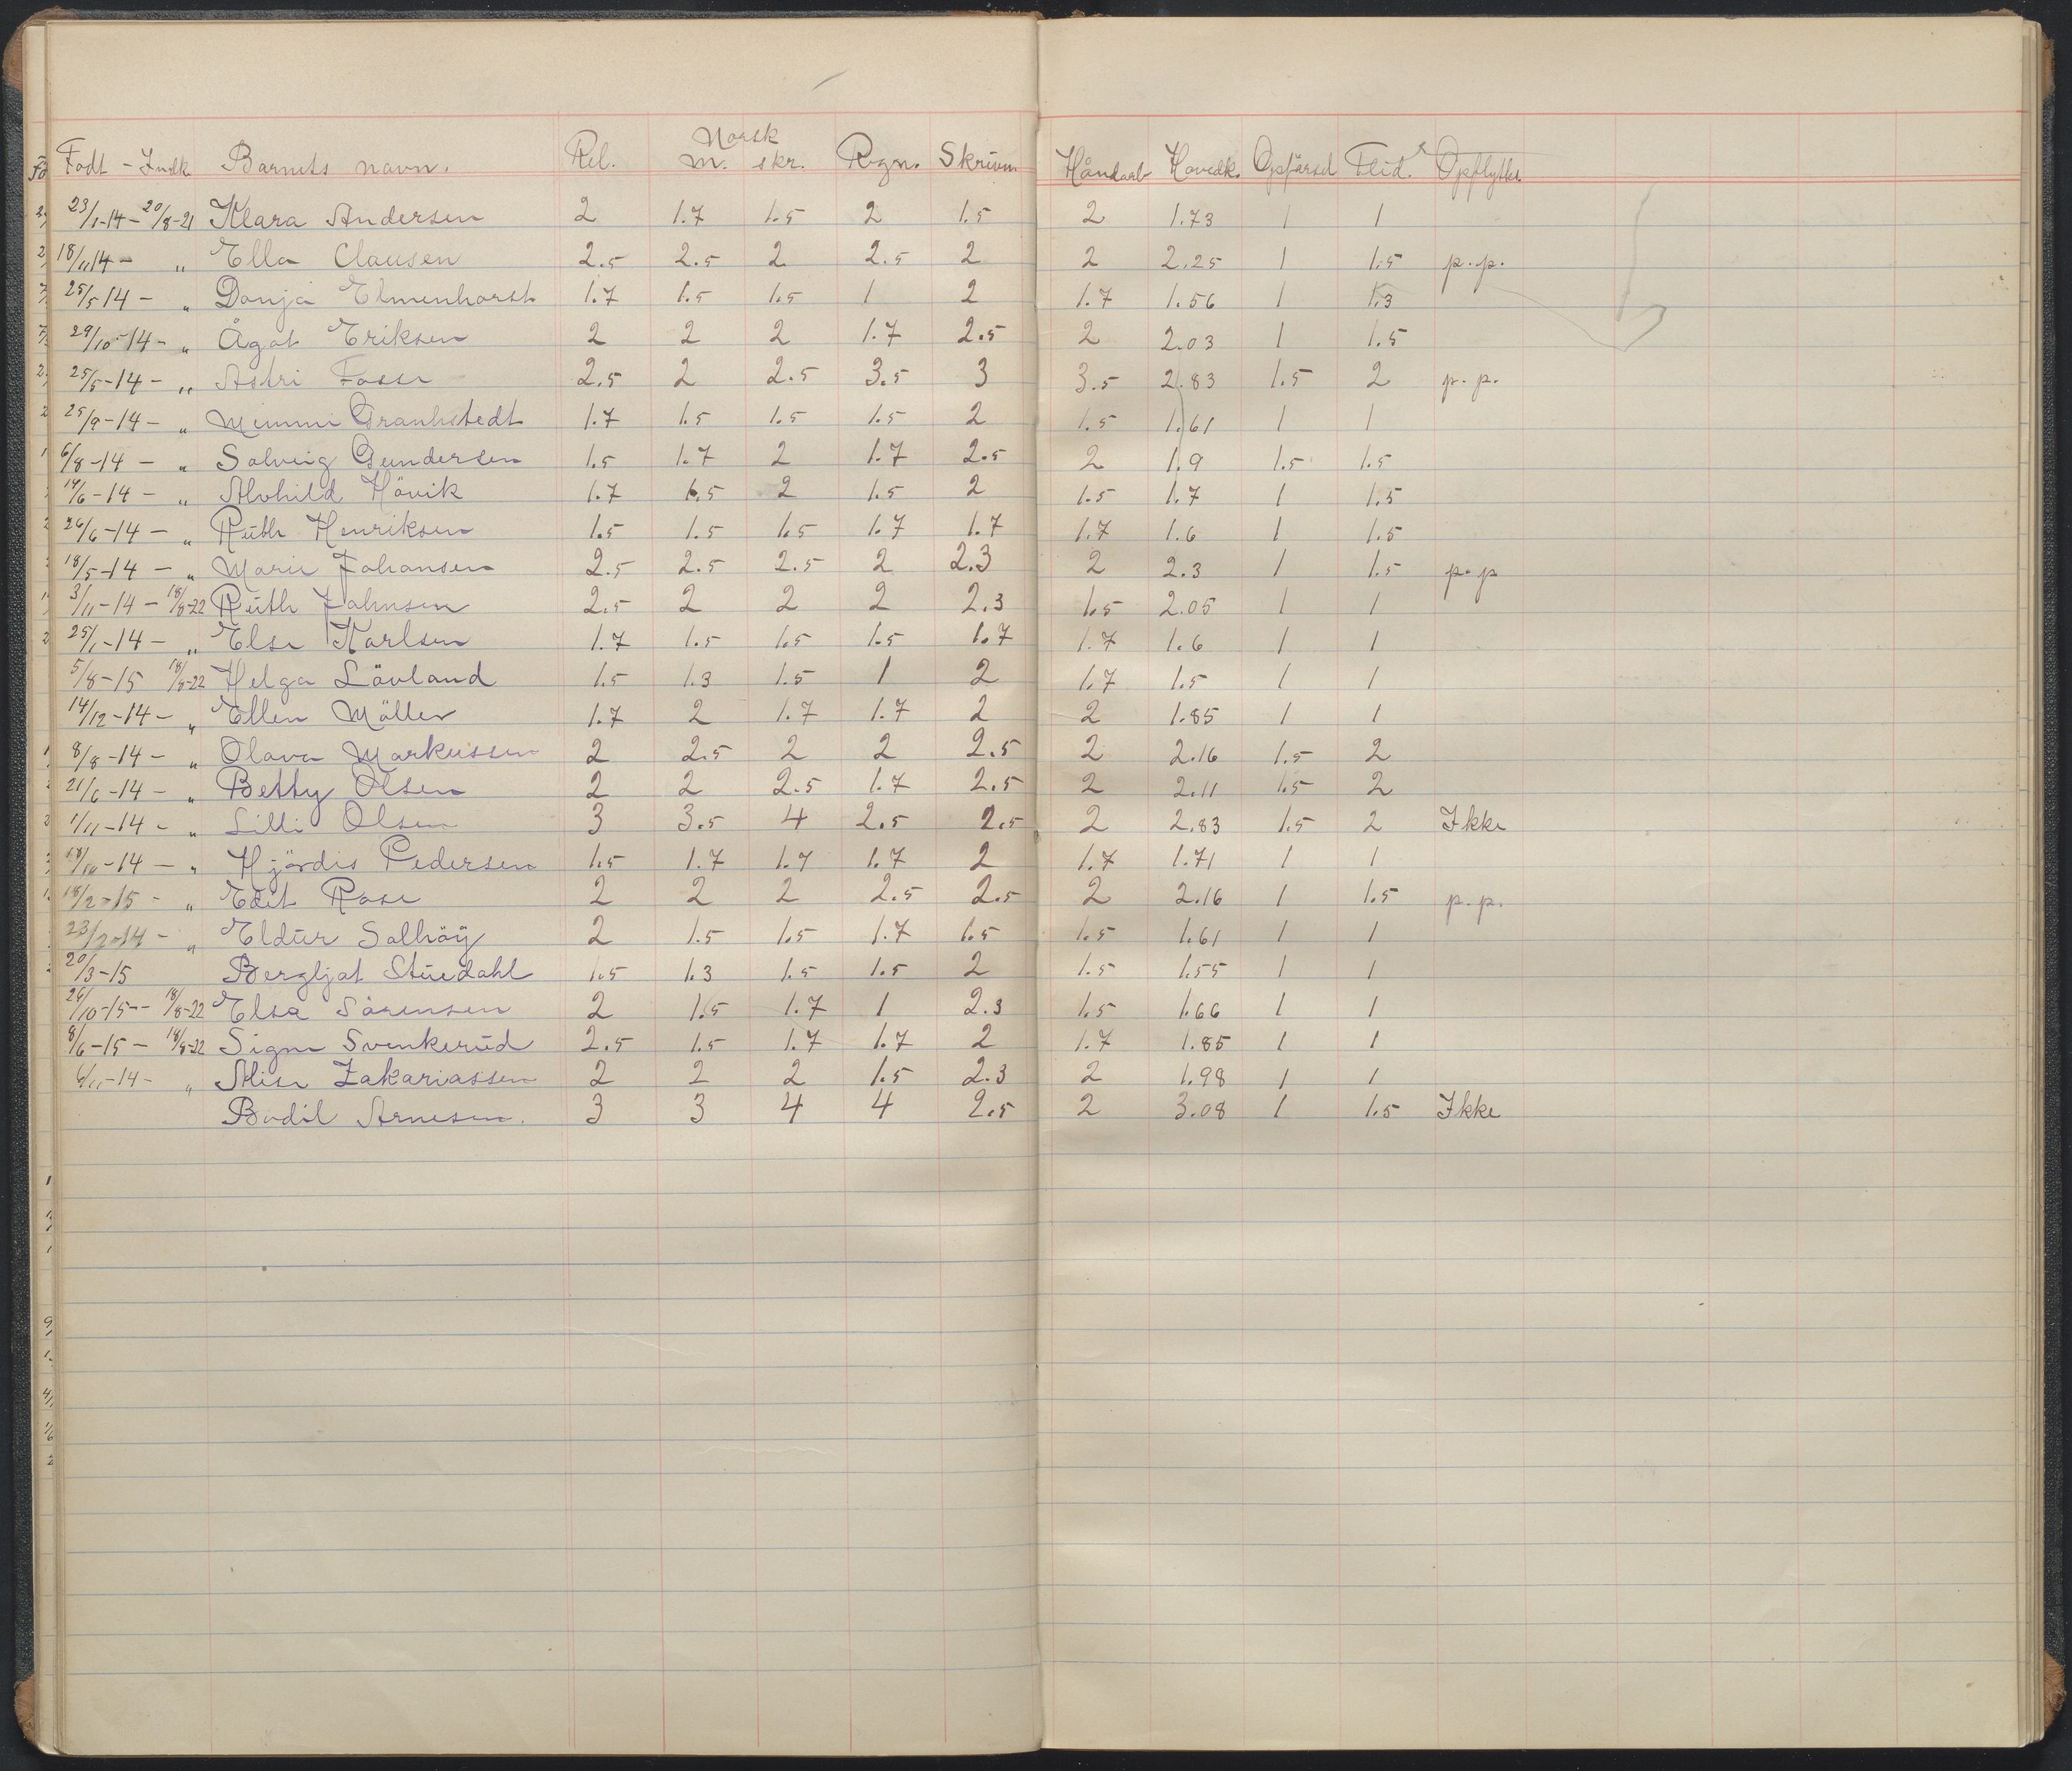 Norsk
Født - Indk. Barnets navn. Rel. m. skr. Regn. Skrivn. Håndarb. Hovedk. Opførsel Flid. Opflyttes
23/1-14 - 20/8-21 Klara Andersen 2 1.7 1.5 2 1.5 2 1.73 1 1
18/11 14 - " Ella Clausen 2.5 2.5 2 2.5 2 2 2.25 1 1.5 p.p.
25/5 14 - " Donja Elmenhorst 1.7 1.5 1.5 1 2 1.7 1.56 1 1.3
29/10-14 - " Ågot Eriksen 2 2 2 1.7 2.5 2 2.03 1 1.5
25/5-14 - " Astri Fosse 2.5 2 2.5 3.5 3 3.5 2.83 1.5 2 p.p.
25/9-14 - " Mimmi Granhstedt 1.7 1.5 1.5 1.5 2 1.5 1.61 1 1
6/8-14 - " Solveig Gundersen 1.5 1.7 2 1.7 2.5 2 1.9 1.5 1.5
14/6-14 - " Alvhild Hövik 1.7 1.5 2 1.5 2 1.5 1.7 1 1.5
26/6-14 - " Ruth Henriksen 1.5 1.5 1.5 1.7 1.7 1.7 1.6 1 1.5
18/5-14 - " Marie Johansen 2.5 2.5 2.5 2 2.3 2 2.3 1 1.5 p.p
3/11-14 - 18/8-22 Ruth Johnsen 2.5 2 2 2 2.3 1.5 2.05 1 1
25/1-14 - " Else Karlsen 1.7 1.5 1.5 1.5 1.7 1.7 1.6 1 1
5/8-15 18/8-22 Helga Lövland 1.5 1.3 1.5 1 2 1.7 1.5 1 1
14/12-14 - " Ellen Möller 1.7 2 1.7 1.7 2 2 1.85 1 1
8/8-14 - " Olava Markussen 2 2.5 2 2 2.5 2 2.16 1.5 2
21/6-14 - " Betty Olsen 2 2 2.5 1.7 2.5 2 2.11 1.5 2
1/11-14 - " Lilli Olsen 3 3.5 4 2.5 2.5 2 2.83 1.5 2 Ikke
-14 - " Hjördis Pedersen 1.5 1.7 1.7 1.7 2 1.7 1.71 1 1
18/2-15 - " Edit Rose 2 2 2 2.5 2.5 2 2.16 1 1.5 p.p.
23/2-14 - " Eldur Solhöy 2 1.5 1.5 1.7 1.5 1.5 1.61 1 1
20/3-15 Bergljot Stuedahl 1.5 1.3 1.5 1.5 2 1.5 1.55 1 1
26/10-15 - 18/8-22 Elsa Sörensen 2 1.5 1.7 1 2.3 1.5 1.66 1 1
8/6-15 - 18/8-22 Signe Svenkerud 2.5 1.5 1.7 1.7 2 1.7 1.85 1 1
6/11-14 - " Alise Zakariassen 2 2 2 1.5 2.3 2 1.98 1 1
Bodil Arnesen. 3 3 4 4 2.5 2 3.08 1 1.5 Ikke